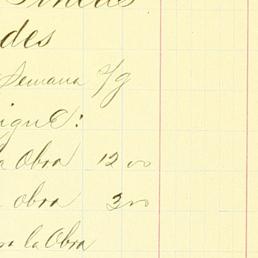 des
Semana
igue:
la Obra 12 00
obra 3 00
la Obra